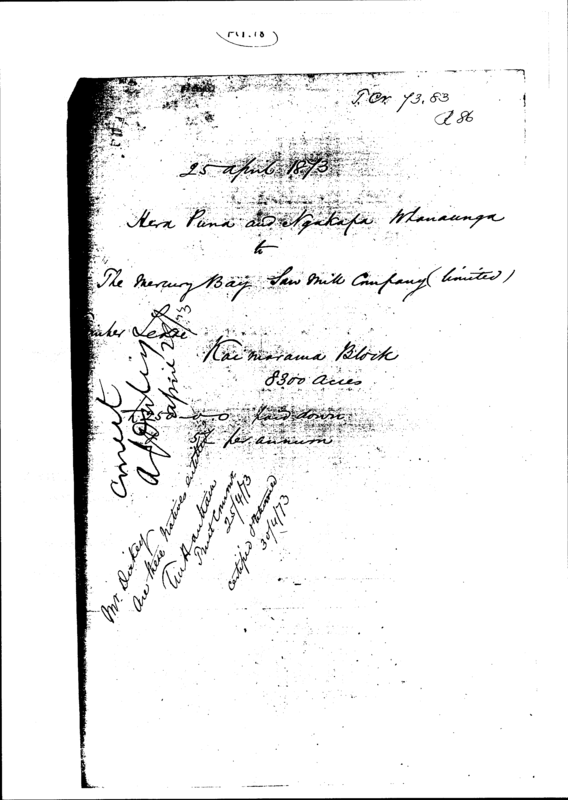 T. Cr. 73.83
A 86
25 April 1873
Hera Puna and Ngakapa Whanaunga
to
The Mercury Bay Saw Mill Company (limited)
Lease
Kaimarama Block
8300 Acres
5-0-0 paid down
per annum
Correct
April 28/73
Mr. Dickey
are these natives entitled
Trust Commr
25/4/73
certified & returned
30/4/73